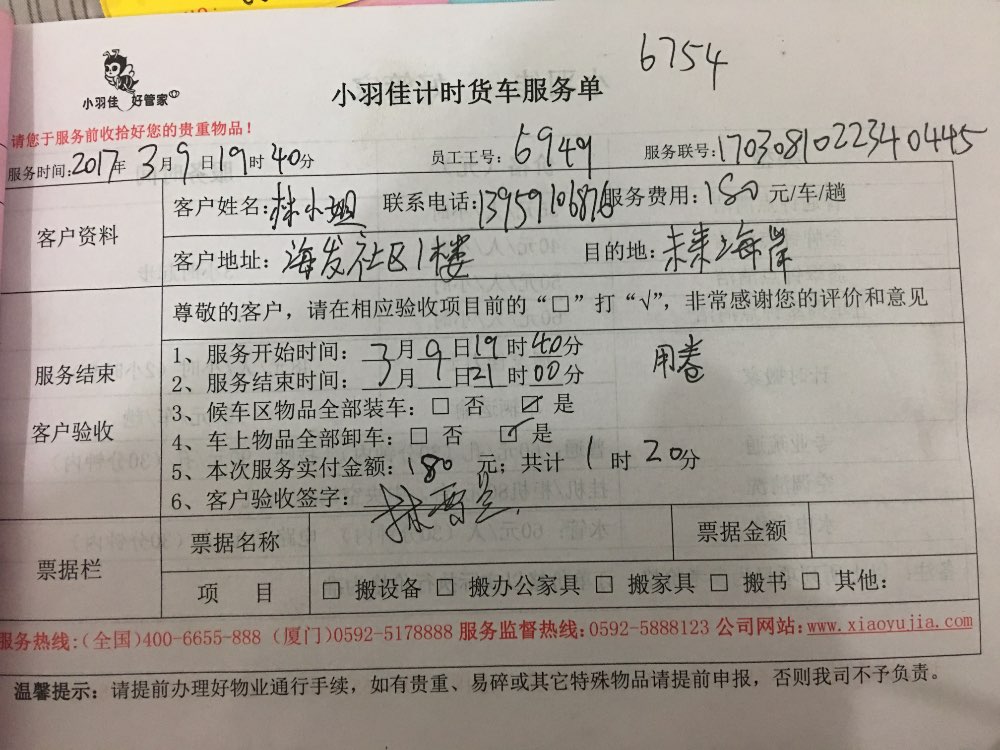 6754
小羽佳 好管家
小羽佳计时货车服务单
请您于服务前收拾好您的贵重物品！
服务时间:2017年 3月9日19时40分 员工工号:6949 服务联号:170308102234 0445
客户资料
客户姓名:林小姐 联系电话:13959106876 服务费用:180 元/车/趟
客户地址: 海发社区1楼 目的地:未来海岸
服务结束
客户验收
尊敬的客户，请在相应验收项目前的“□”打“√”，非常感谢您的评价和意见
1、服务开始时间: 3月9日19时40分 用卷
2、服务结束时间: 月 日21时00分
3、候车区物品全部装车: □ 否 ☑ 是
4、车上物品全部卸车: □ 否 ☑ 是
5、本次服务实付金额: 180 元; 共计 1 时 20分
6、客户验收签字:
票据栏
票据名称 票据金额
项 目 □ 搬设备 □ 搬办公家具 □ 搬家具 □ 搬书 □ 其他:
服务热线:(全国)400-6655-888 (厦门)0592-5178888 服务监督热线:0592-5888123 公司网站:www.xiaoyujia.com
温馨提示: 请提前办理好物业通行手续，如有贵重、易碎或其它特殊物品请提前申报，否则我司不予负责。